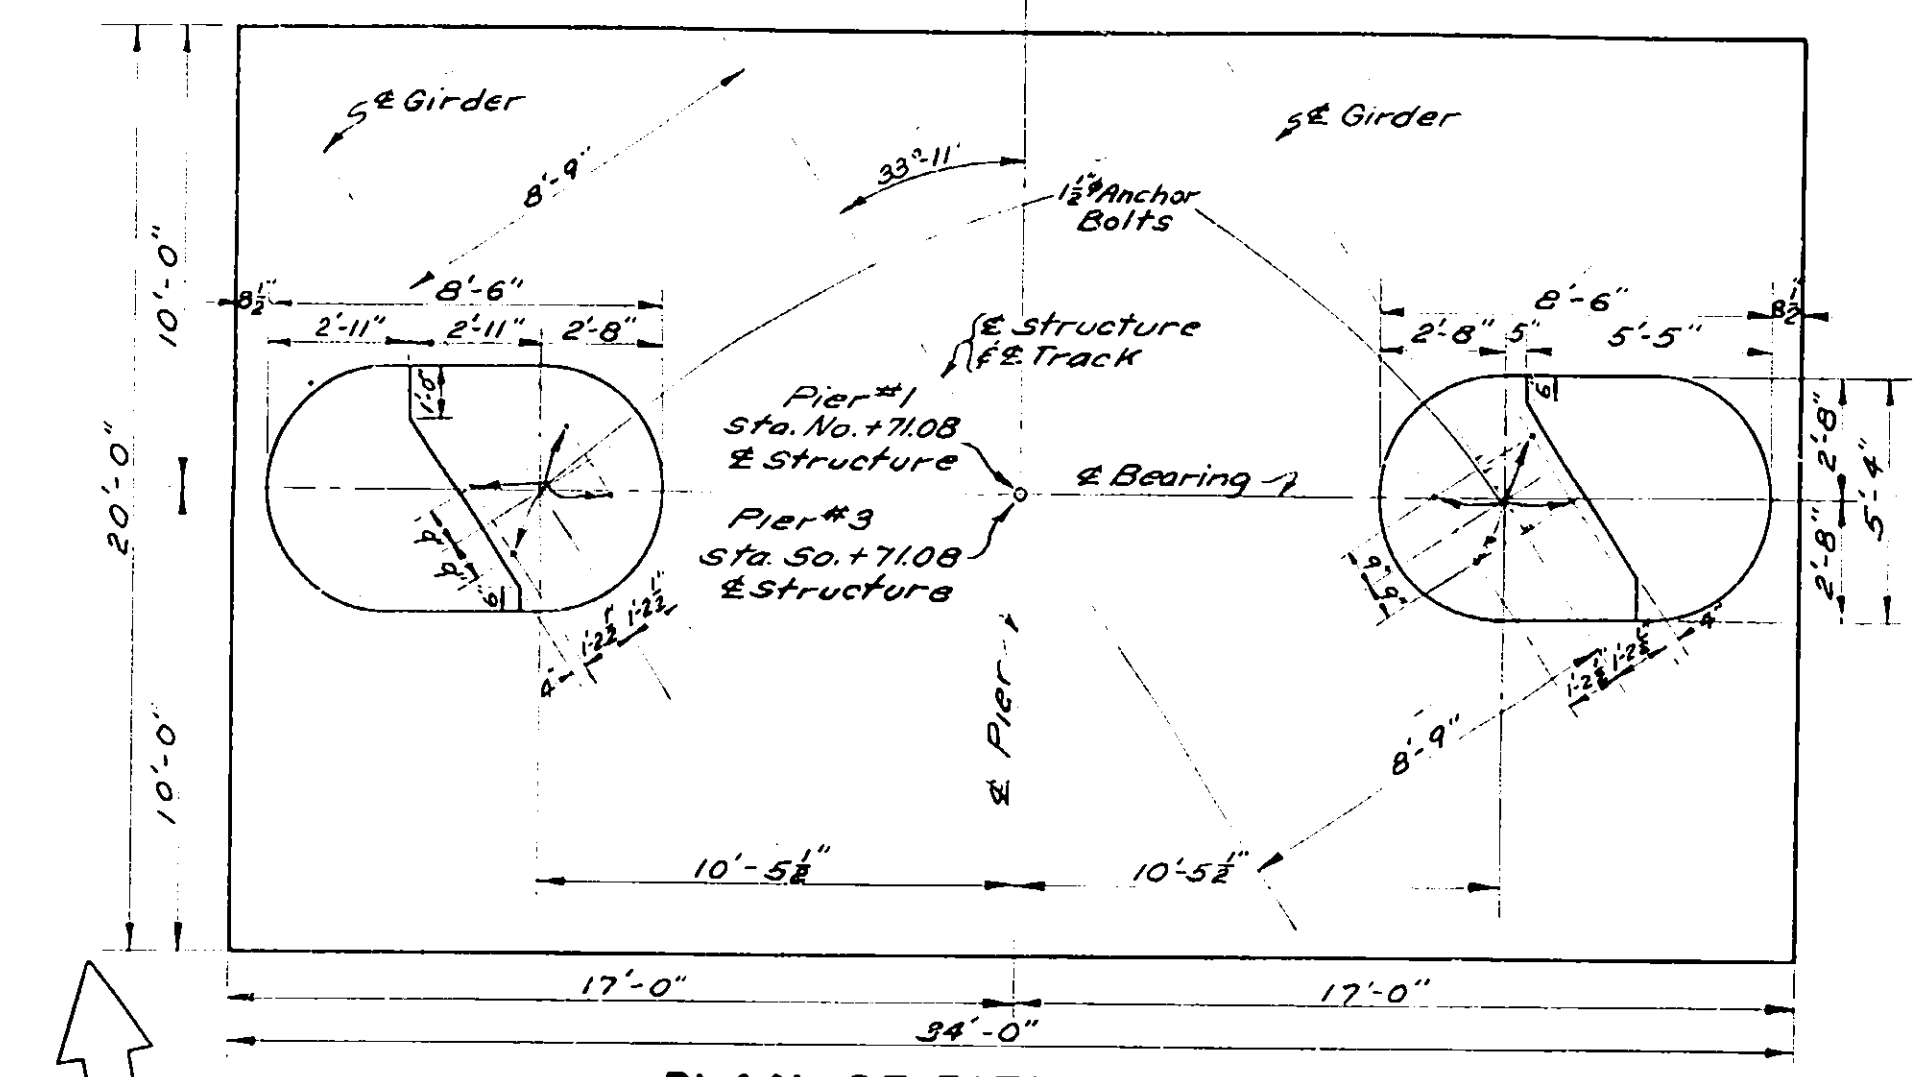 ℄ Girder
℄ Girder
8'-9"
33°-11'
1½"⌀ Anchor
Bolts
10'-0"
20'-0"
10'-0"
8½"
8'-6"
2'-11"
2'-11"
2'-8"
1'-0"
9"
9"
6"
4"
1'-2½"
1'-2½"
℄ Structure
& ℄ Track
Pier #1
Sta. No. + 71.08
℄ Structure
Pier #3
Sta. So. + 71.08
℄ Structure
℄ Bearing
℄ Pier
8'-6"
8½"
2'-8"
5"
5'-5"
9"
9"
2'-8"
2'-8"
5'-4"
4"
1'-2½"
1'-2½"
8'-9"
10'-5½"
10'-5½"
17'-0"
17'-0"
34'-0"